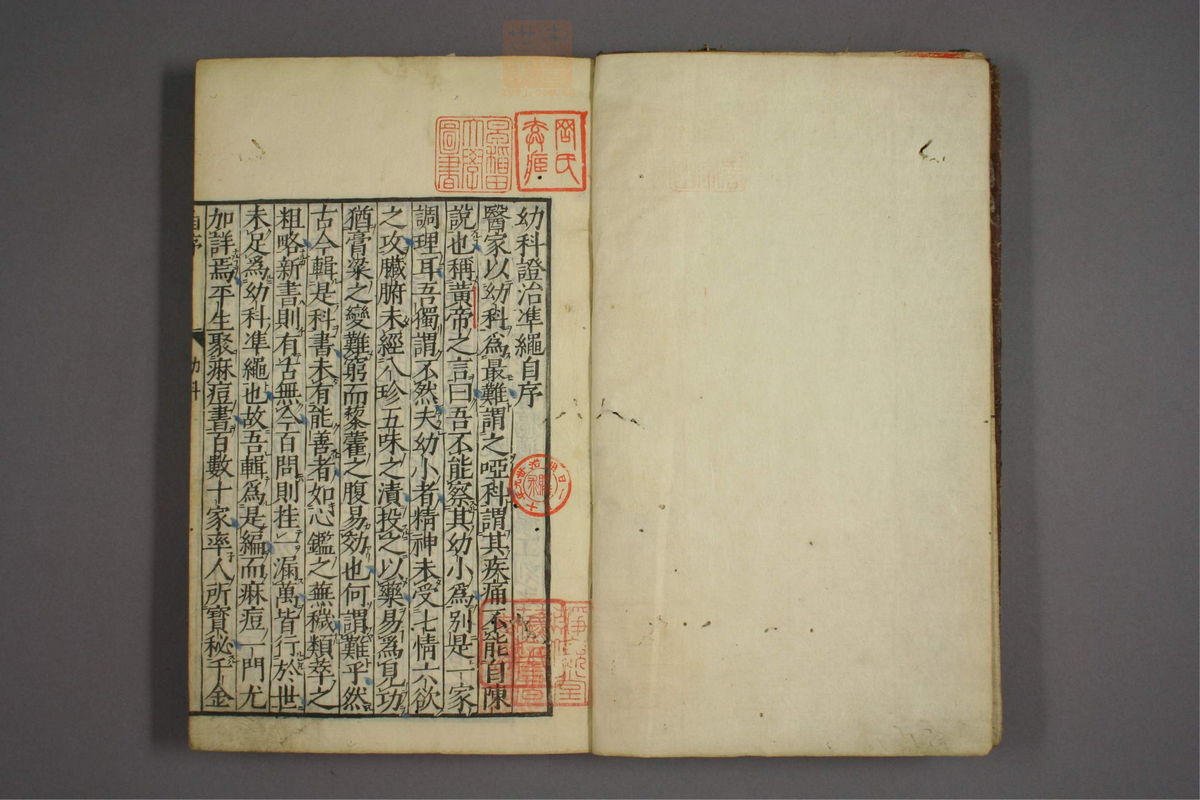 幼科證治凖繩自序
醫家以幼科爲最難謂之啞科謂其疾痛不能自陳
說也稱黃帝之言曰吾不能察其幼小爲別是一家
調理耳吾獨謂不然夫幼小者精神未受七情六欲
之攻臟腑未經八珍五味之漬投之以藥易爲見功
猶膏粱之變難窮而藜藿之腹易効也何謂難乎然
古今輯是科書未有能善者如心鑑之蕪穢類萃之
粗略新書則有古無今百問則挂一漏萬皆行於世
未足爲幼科凖繩也故吾輯爲是編而麻痘一門尤
加詳焉平生聚麻痘書百數十家率人所寶秘千金
自序
幼科
圖書